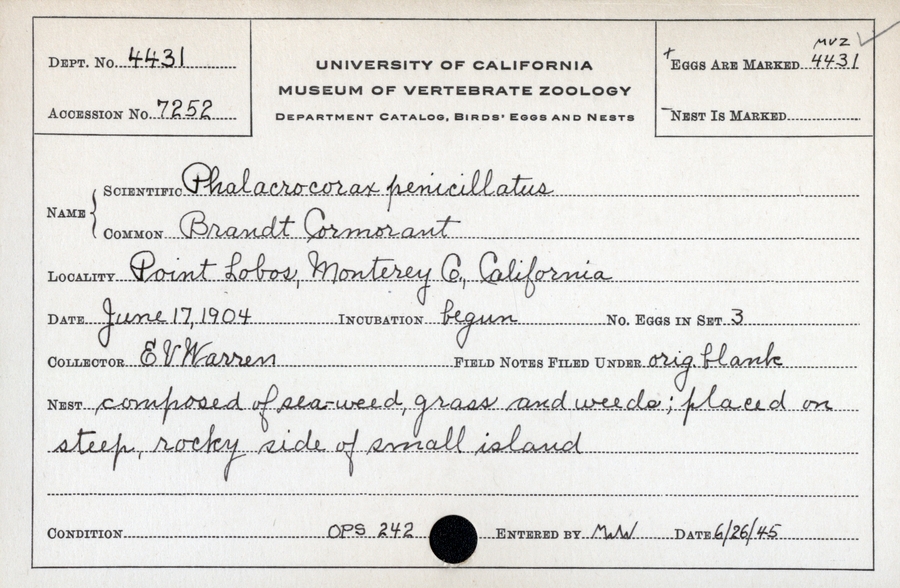 DEPT. No. 4431
ACCESSION No. 7252
UNIVERSITY OF CALIFORNIA
MUSEUM OF VERTEBRATE ZOOLOGY
DEPARTMENT CATALOG, BIRDS' EGGS AND NESTS
MVZ ✓
+ EGGS ARE MARKED 4431
- NEST IS MARKED
NAME { SCIENTIFIC Phalacrocorax penicillatus
COMMON Brandt Cormorant
LOCALITY Point Lobos, Monterey Co., California
DATE June 17, 1904 INCUBATION begun No. EGGS IN SET 3
COLLECTOR E V Warren FIELD NOTES FILED UNDER orig. blank
NEST composed of sea-weed, grass and weeds; placed on
steep, rocky side of small island
CONDITION OPS 242 ENTERED BY MWW DATE 6/26/45